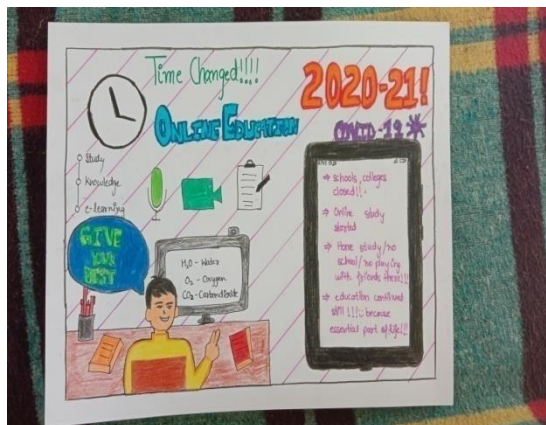 Time Changed!!!!
2020-21!
ONLINE EDUCATION
COVID-19
Study
Knowledge
e-learning
GIVE
YOUR
BEST
H₂O - Water
O₂ - Oxygen
CO₂ - Carbondioxide
⇒ schools, colleges
closed!!
⇒ Online study
started
⇒ Home study/no
school/no playing
with friends these!!!
⇒ education continued
still!!! because
essential part of life!!!